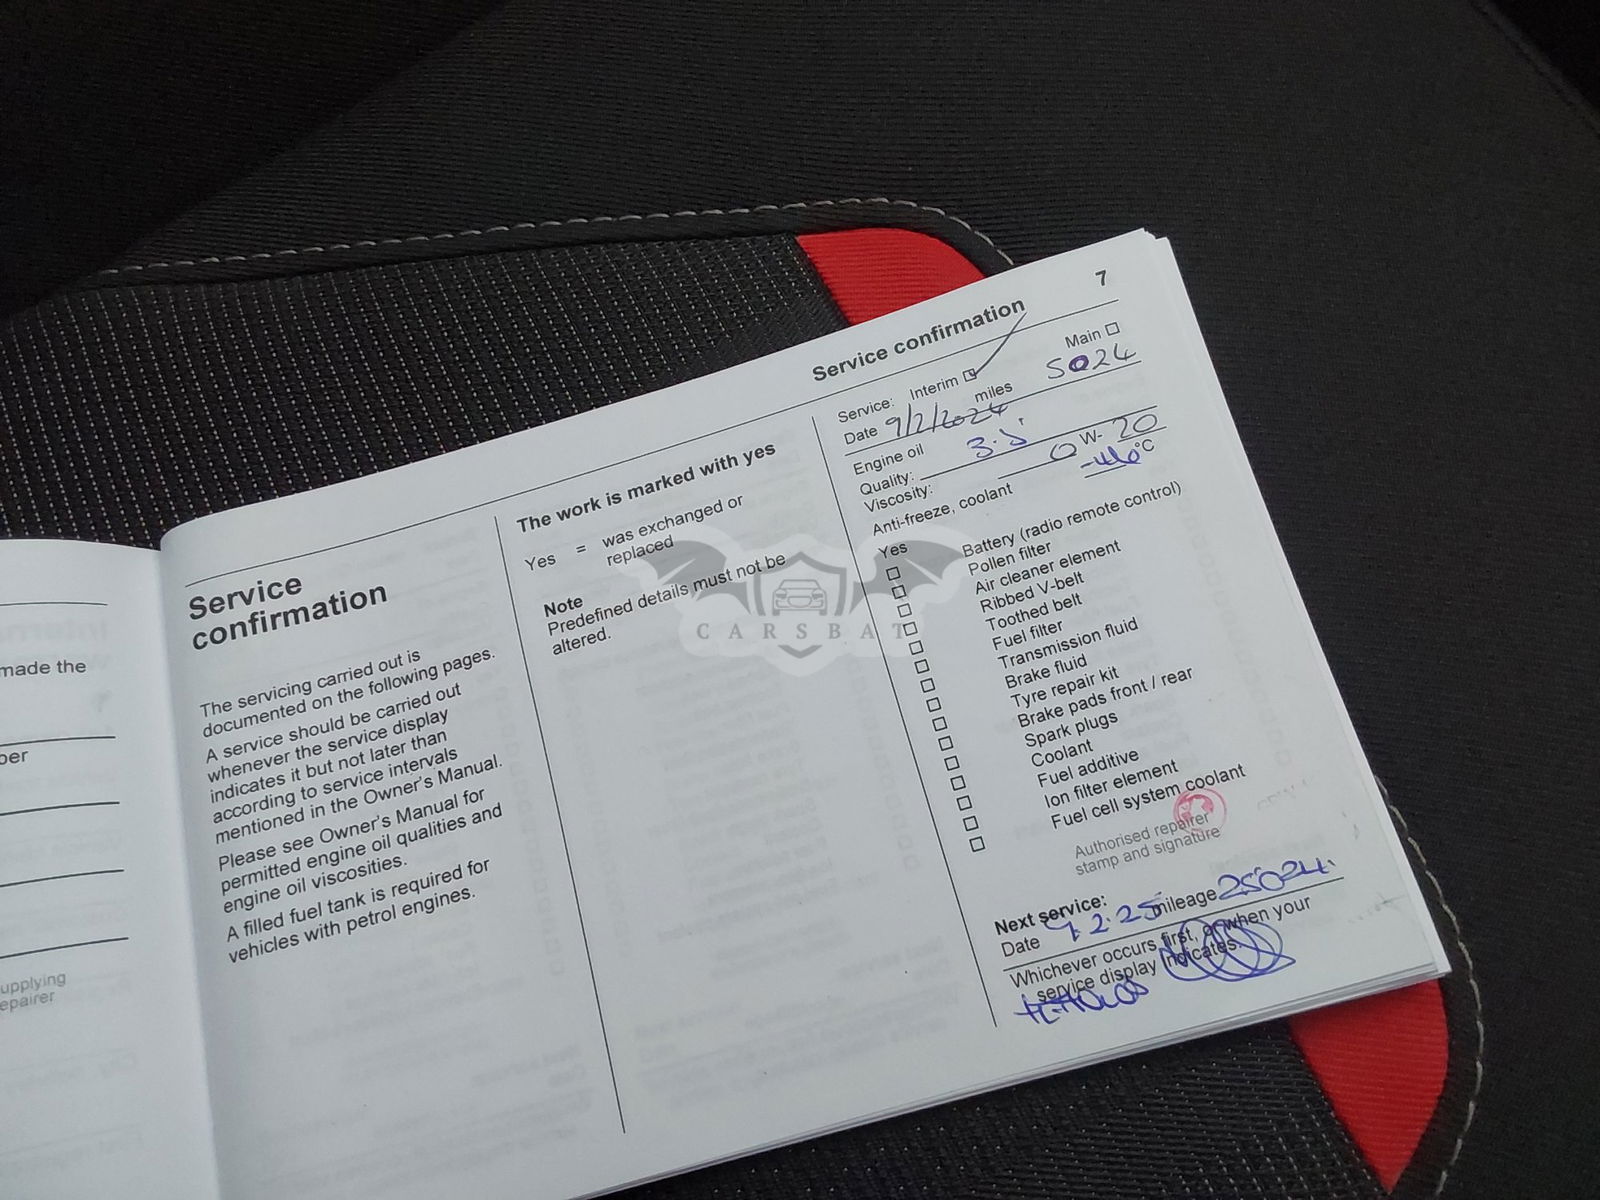 made the
ber
upplying
epairer
Service
confirmation
The servicing carried out is
documented on the following pages.
A service should be carried out
whenever the service display
indicates it but not later than
according to service intervals
mentioned in the Owner's Manual.
Please see Owner's Manual for
permitted engine oil qualities and
engine oil viscosities.
A filled fuel tank is required for
vehicles with petrol engines.
The work is marked with yes
Yes = was exchanged or
replaced
Note
Predefined details must not be
altered.
CARSBAT
Service confirmation 7
Service: Interim Main
Date 9/2/2024 miles 5024
Engine oil
Quality:
Viscosity: 0 W- 20
Anti-freeze, coolant °C
Yes
Battery (radio remote control)
Pollen filter
Air cleaner element
Ribbed V-belt
Toothed belt
Fuel filter
Transmission fluid
Brake fluid
Tyre repair kit
Brake pads front / rear
Spark plugs
Coolant
Fuel additive
Ion filter element
Fuel cell system coolant
Authorised repairer
stamp and signature
Next service:
Date 9.2.25 mileage 25024
Whichever occurs first, or when your
service display indicates.